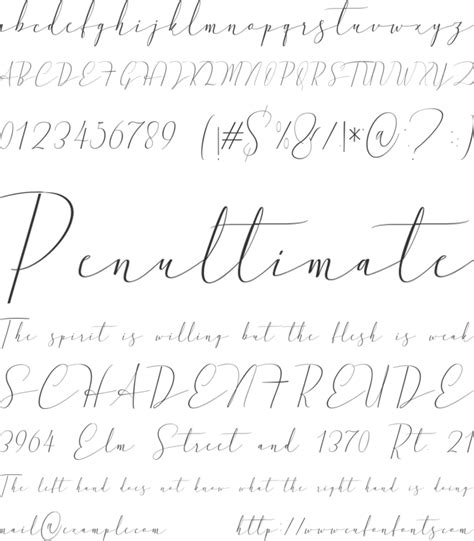 abcdefghijklmnopqrstuvwxyz
ABCDEFGHIJKLMNOPQRSTUVWXYZ
0123456789 (#$%&/|*@?:)
Penultimate
The spirit is willing but the flesh is weak
SCHADENFREUDE
3964 Elm Street and 1370 Rt. 21
The left hand does not know what the right hand is doing
mail@example.com http://www.cufonfonts.com